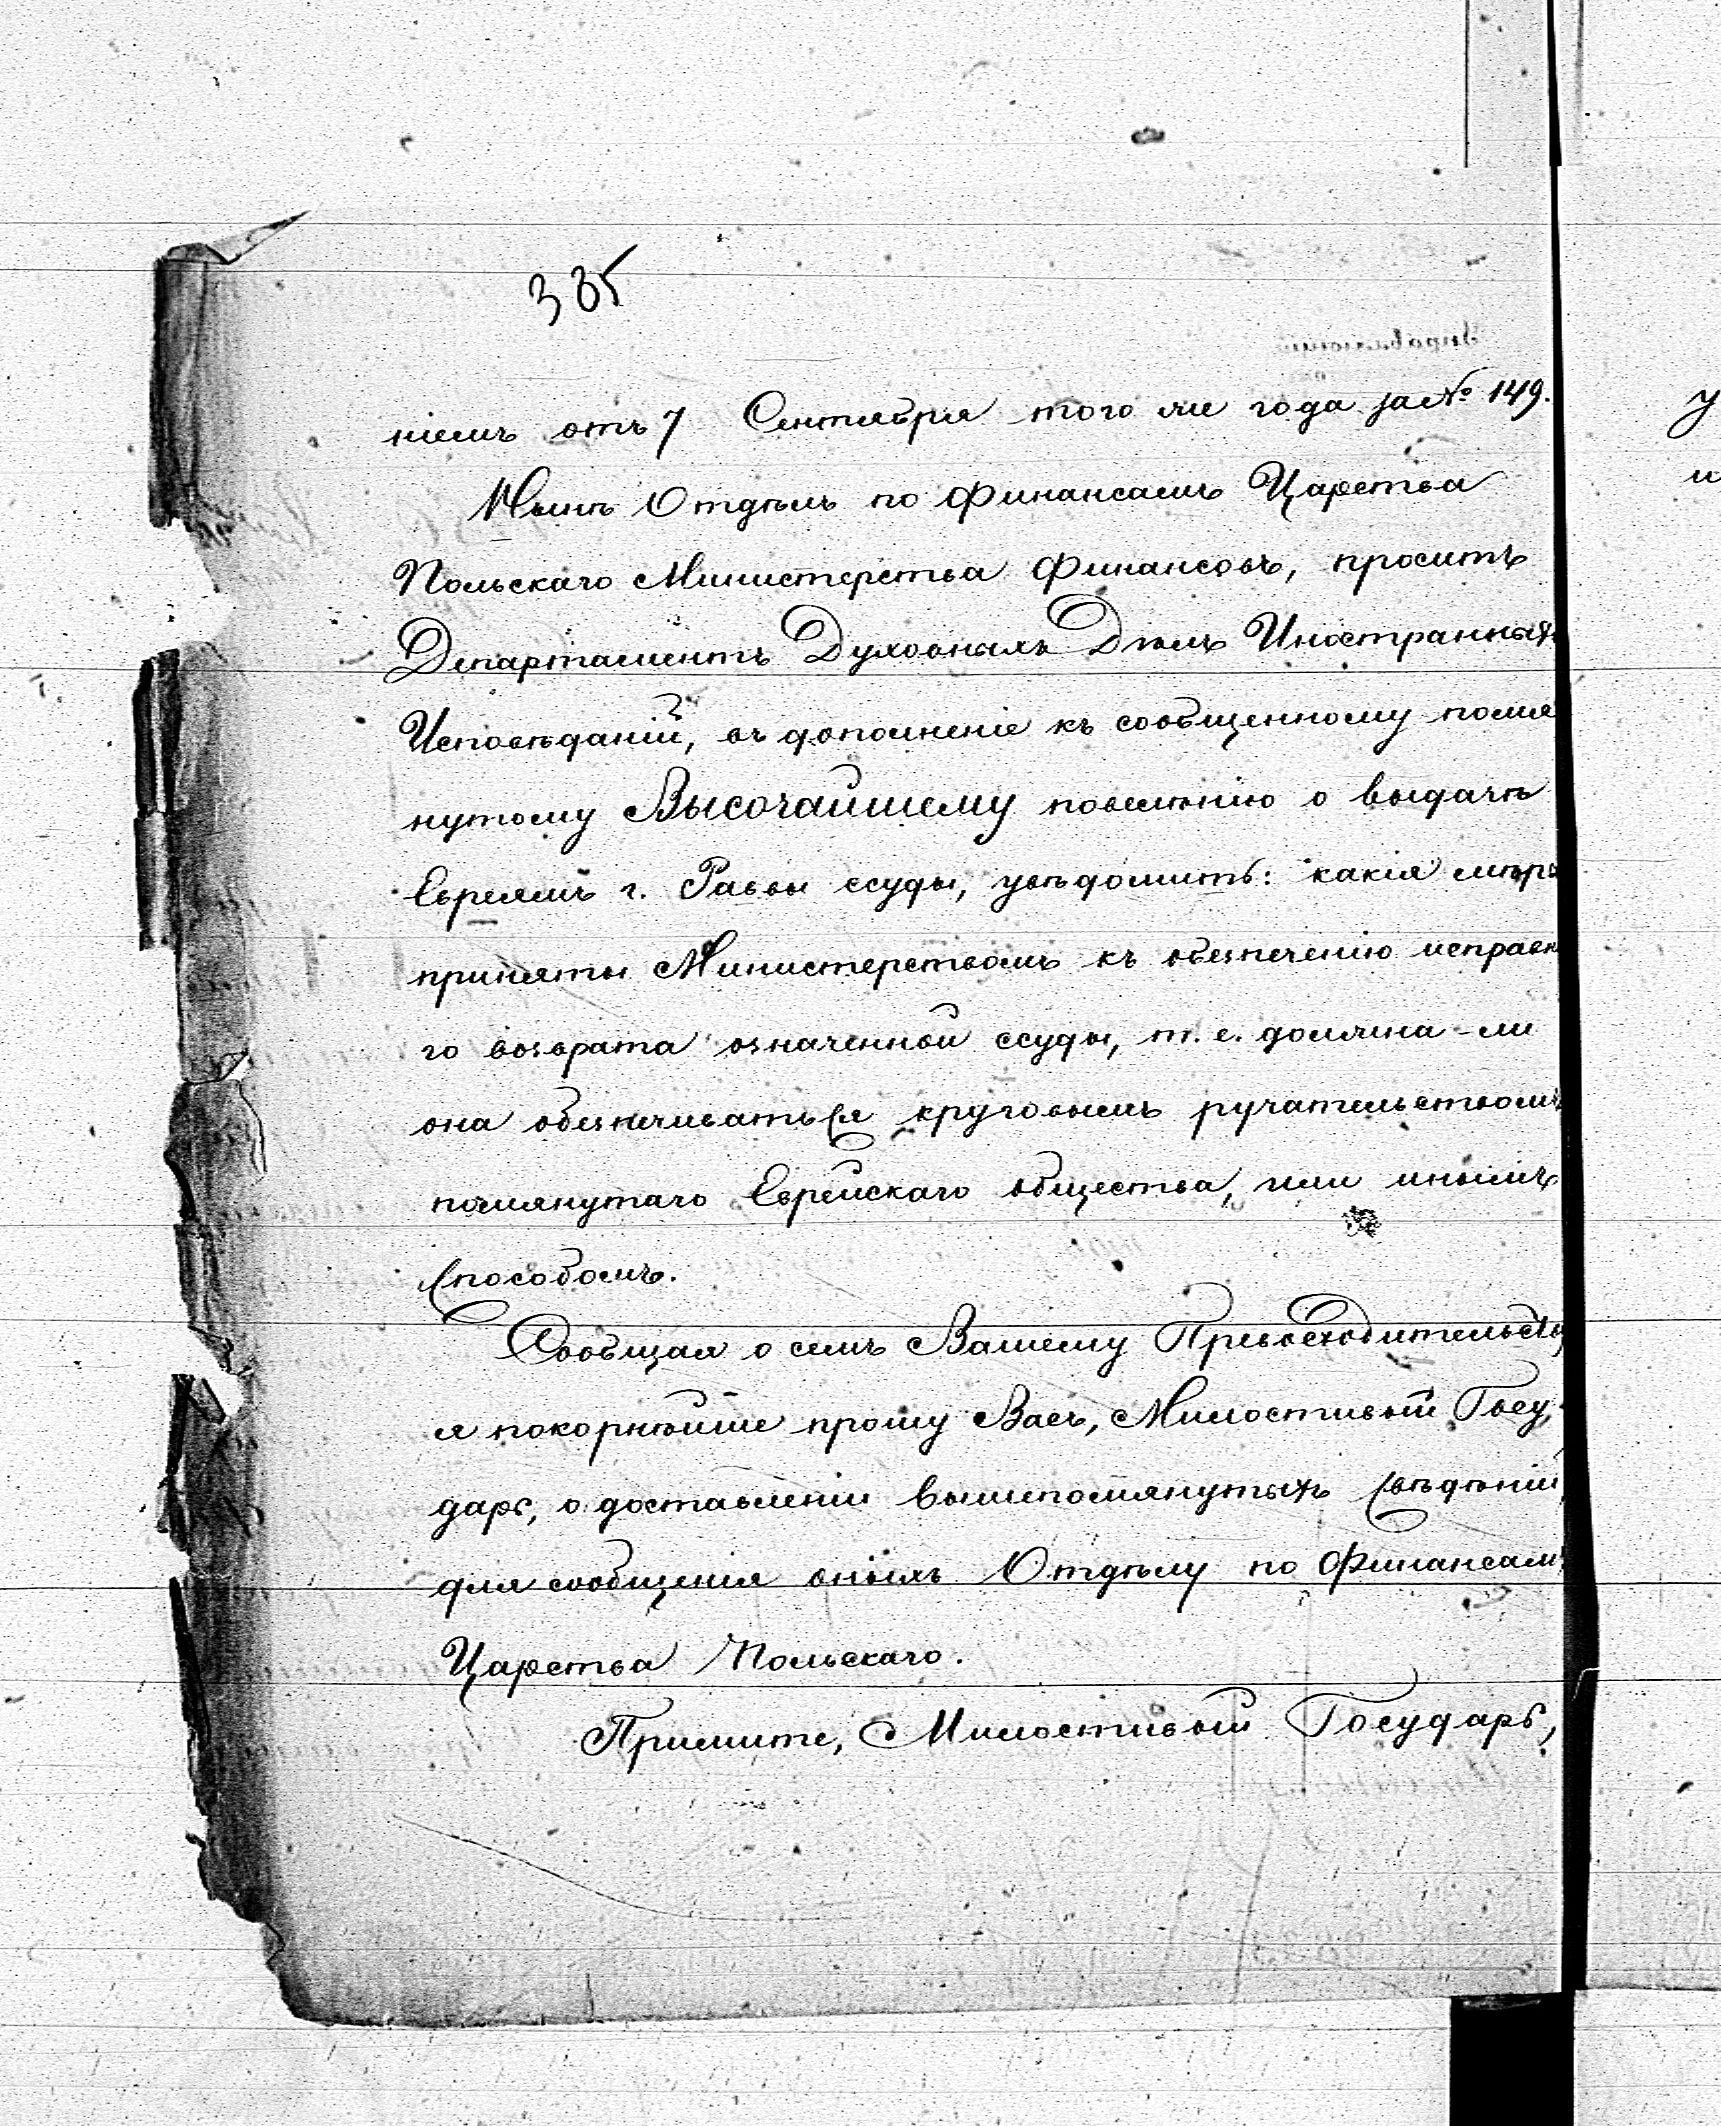 335
ніемъ отъ 7 Сентября того же года за № 149.
Нынѣ Отдѣлъ по Финансамъ Царства
Польскаго Министерства Финансовъ, проситъ
Департаментъ Духовныхъ Дѣлъ Иностранныхъ
Исповѣданій, въ дополненіе къ сообщенному помя
нутому Высочайшему повелѣнію о выдачѣ
Евреямъ г. Равы ссуды, увѣдомить: какія мѣры
приняты Министерствомъ къ обезпеченію исправн
го возврата означенной ссуды, т. е. должна-ли
она обезпечиваться круговымъ ручательствомъ
помянутаго Еврейскаго общества, или инымъ
способомъ.
Сообщая о семъ Вашему Превосходительству
я покорнѣйше прошу Васъ, Милостивый Госу-
дарь, о доставленіи вышепомянутыхъ свѣдѣній
для сообщенія оныхъ Отдѣлу по Финансамъ
Царства Польскаго.
Примите, Милостивый Государь,